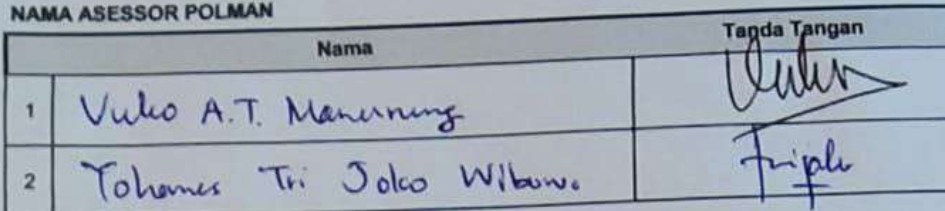 NAMA ASESSOR POLMAN
Nama Tanda Tangan
1 Vuko A.T. Manurung
2 Yohanes Tri Joko Wibowo